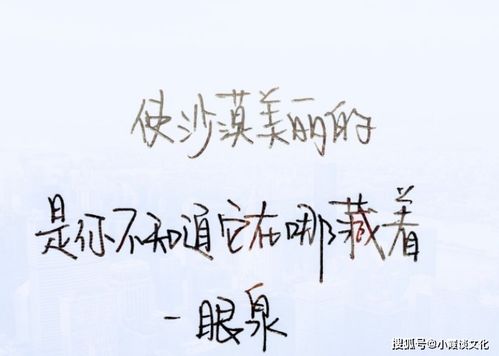 使沙漠美丽的
是你不知道它在哪藏着
一眼泉
搜狐号@小霞谈文化